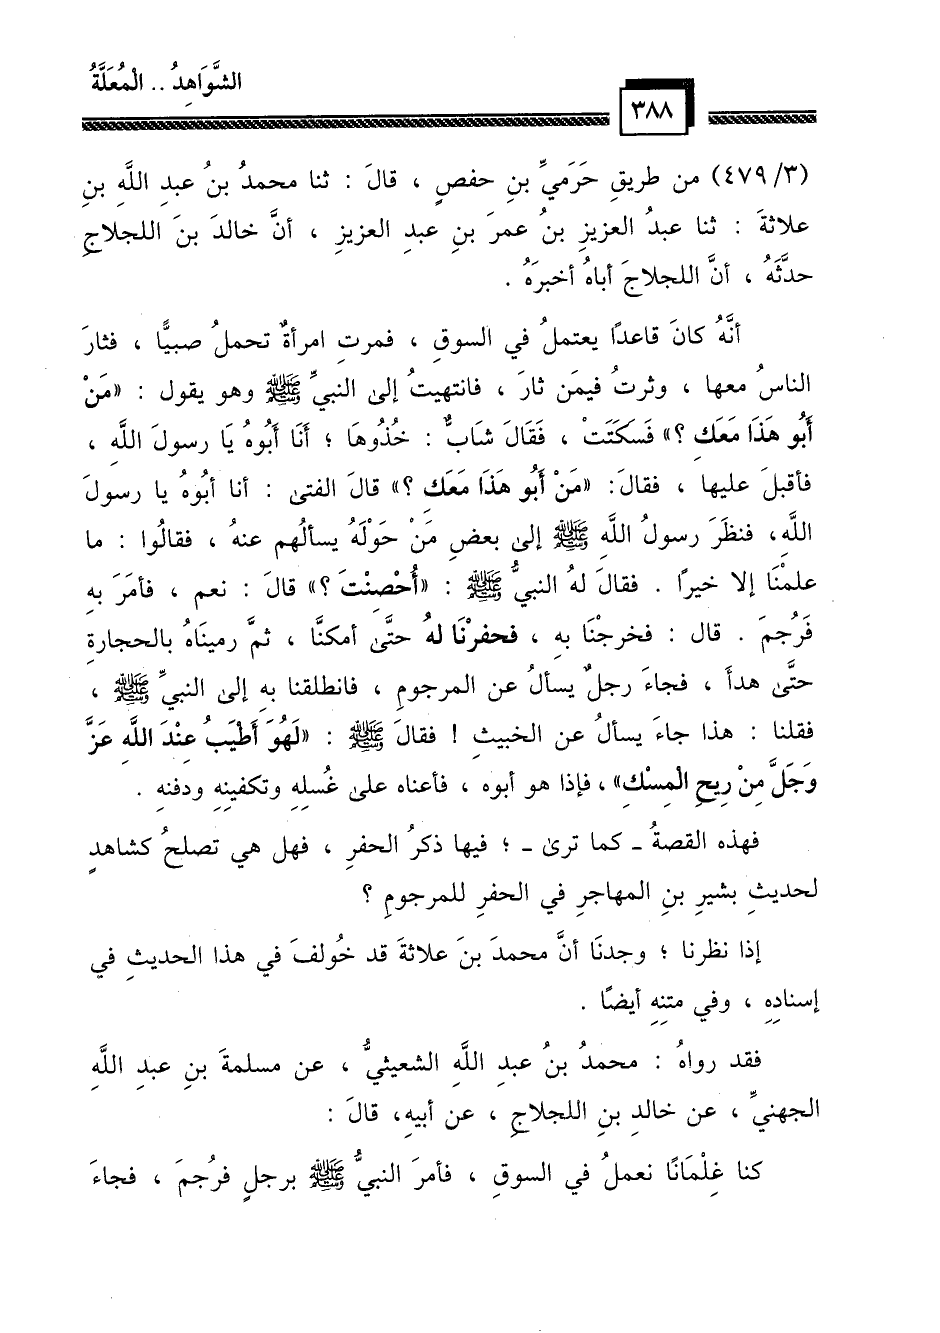 الشَّوَاهِدُ .. الْمُعَلَّةُ
٣٨٨
(٣/ ٤٧٩) من طريقِ حَرَميِّ بنِ حفصٍ ، قالَ : ثنا محمدُ بنُ عبدِ اللَّهِ بنِ
علاثةَ : ثنا عبدُ العزيزِ بنُ عمرَ بنِ عبدِ العزيزِ ، أنَّ خالدَ بنَ اللجلاجِ
حدَّثَهُ ، أنَّ اللجلاجَ أباهُ أخبرَهُ .
أنَّهُ كانَ قاعدًا يعتملُ في السوقِ ، فمرتِ امرأةٌ تحملُ صبيًّا ، فثارَ
الناسُ معها ، وثرتُ فيمَن ثارَ ، فانتهيتُ إلى النبيِّ ﷺ وهو يقول : «مَنْ
أَبُو هَذَا مَعَكِ ؟» فَسَكَتَتْ ، فَقَالَ شَابٌّ : خُذُوهَا ؛ أَنَا أَبُوهُ يَا رسولَ اللَّه ،
فأقبلَ عليها ، فقالَ: «مَنْ أَبُو هَذَا مَعَكِ ؟» قالَ الفتى : أنا أبُوهُ يا رسولَ
اللَّهِ، فنظَرَ رسولُ اللَّهِ ﷺ إلى بعضِ مَنْ حَوْلَهُ يسألُهم عنهُ ، فقالُوا : ما
علمْنَا إلا خيرًا . فقالَ لهُ النبيُّ ﷺ : «أُحْصِنْتَ ؟» قالَ : نعم ، فأمَرَ بهِ
فَرُجمَ . قال : فخرجْنَا بهِ ، فحفرْنَا لهُ حتَّى أمكنَّا ، ثمَّ رميناهُ بالحجارةِ
حتَّى هدأَ ، فجاءَ رجلٌ يسألُ عن المرجومِ ، فانطلقنا بهِ إلى النبيِّ ﷺ ،
فقلنا : هذا جاءَ يسألُ عن الخبيثِ ! فقالَ ﷺ : «لَهُوَ أَطْيَبُ عِنْدَ اللَّهِ عَزَّ
وَجَلَّ مِنْ رِيحِ الْمِسْكِ» ، فإذا هو أبوه ، فأعناه على غُسلِهِ وتكفينِهِ ودفنهِ .
فهذه القصةُ ـ كما ترى ـ ؛ فيها ذكرُ الحفرِ ، فهل هي تصلحُ كشاهدٍ
لحديثِ بشيرِ بنِ المهاجرِ في الحفرِ للمرجومِ ؟
إذا نظرنا ؛ وجدنَا أنَّ محمدَ بنَ علاثةَ قد خُولفَ في هذا الحديثِ في
إسنادِهِ ، وفي متنهِ أيضًا .
فقد رواهُ : محمدُ بنُ عبدِ اللَّهِ الشعيثيُّ ، عن مسلمةَ بنِ عبدِ اللَّهِ
الجهنيِّ ، عن خالدِ بنِ اللجلاجِ ، عن أبيهِ، قالَ :
كنا غِلْمَانًا نعملُ في السوقِ ، فأمرَ النبيُّ ﷺ برجلٍ فرُجمَ ، فجاءَ